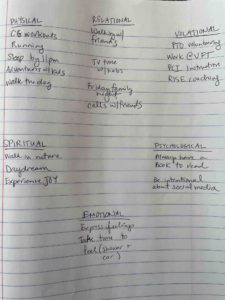 PHYSICAL
CG workouts
Running
Sleep by 11pm
Adventures w/kids
Walk the dog
RELATIONAL
Walking w/
friends
TV time
Friday family
night
calls w/friends
VOCATIONAL
PTO volunteering
Work @
PCI Instruction
RISE coaching
SPIRITUAL
Walk in nature
Daydream
Experience JOY
PSYCHOLOGICAL
Always have a
book to read
Be intentional
about social media
EMOTIONAL
Express feelings
Take time to
feel (shower +
car)